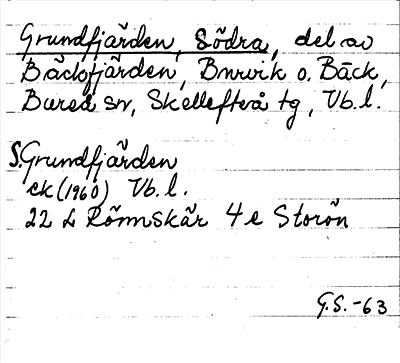 Grundfjärden, Södra, del av
Bäckfjärden, Bnrvik o. Bäck,
Bureå sn, Skellefteå tg, Vb. l.
S. Grundfjärden
ek (1960) Vb. l.
22 L Rönnskär 4 e Storön
G.S. -63